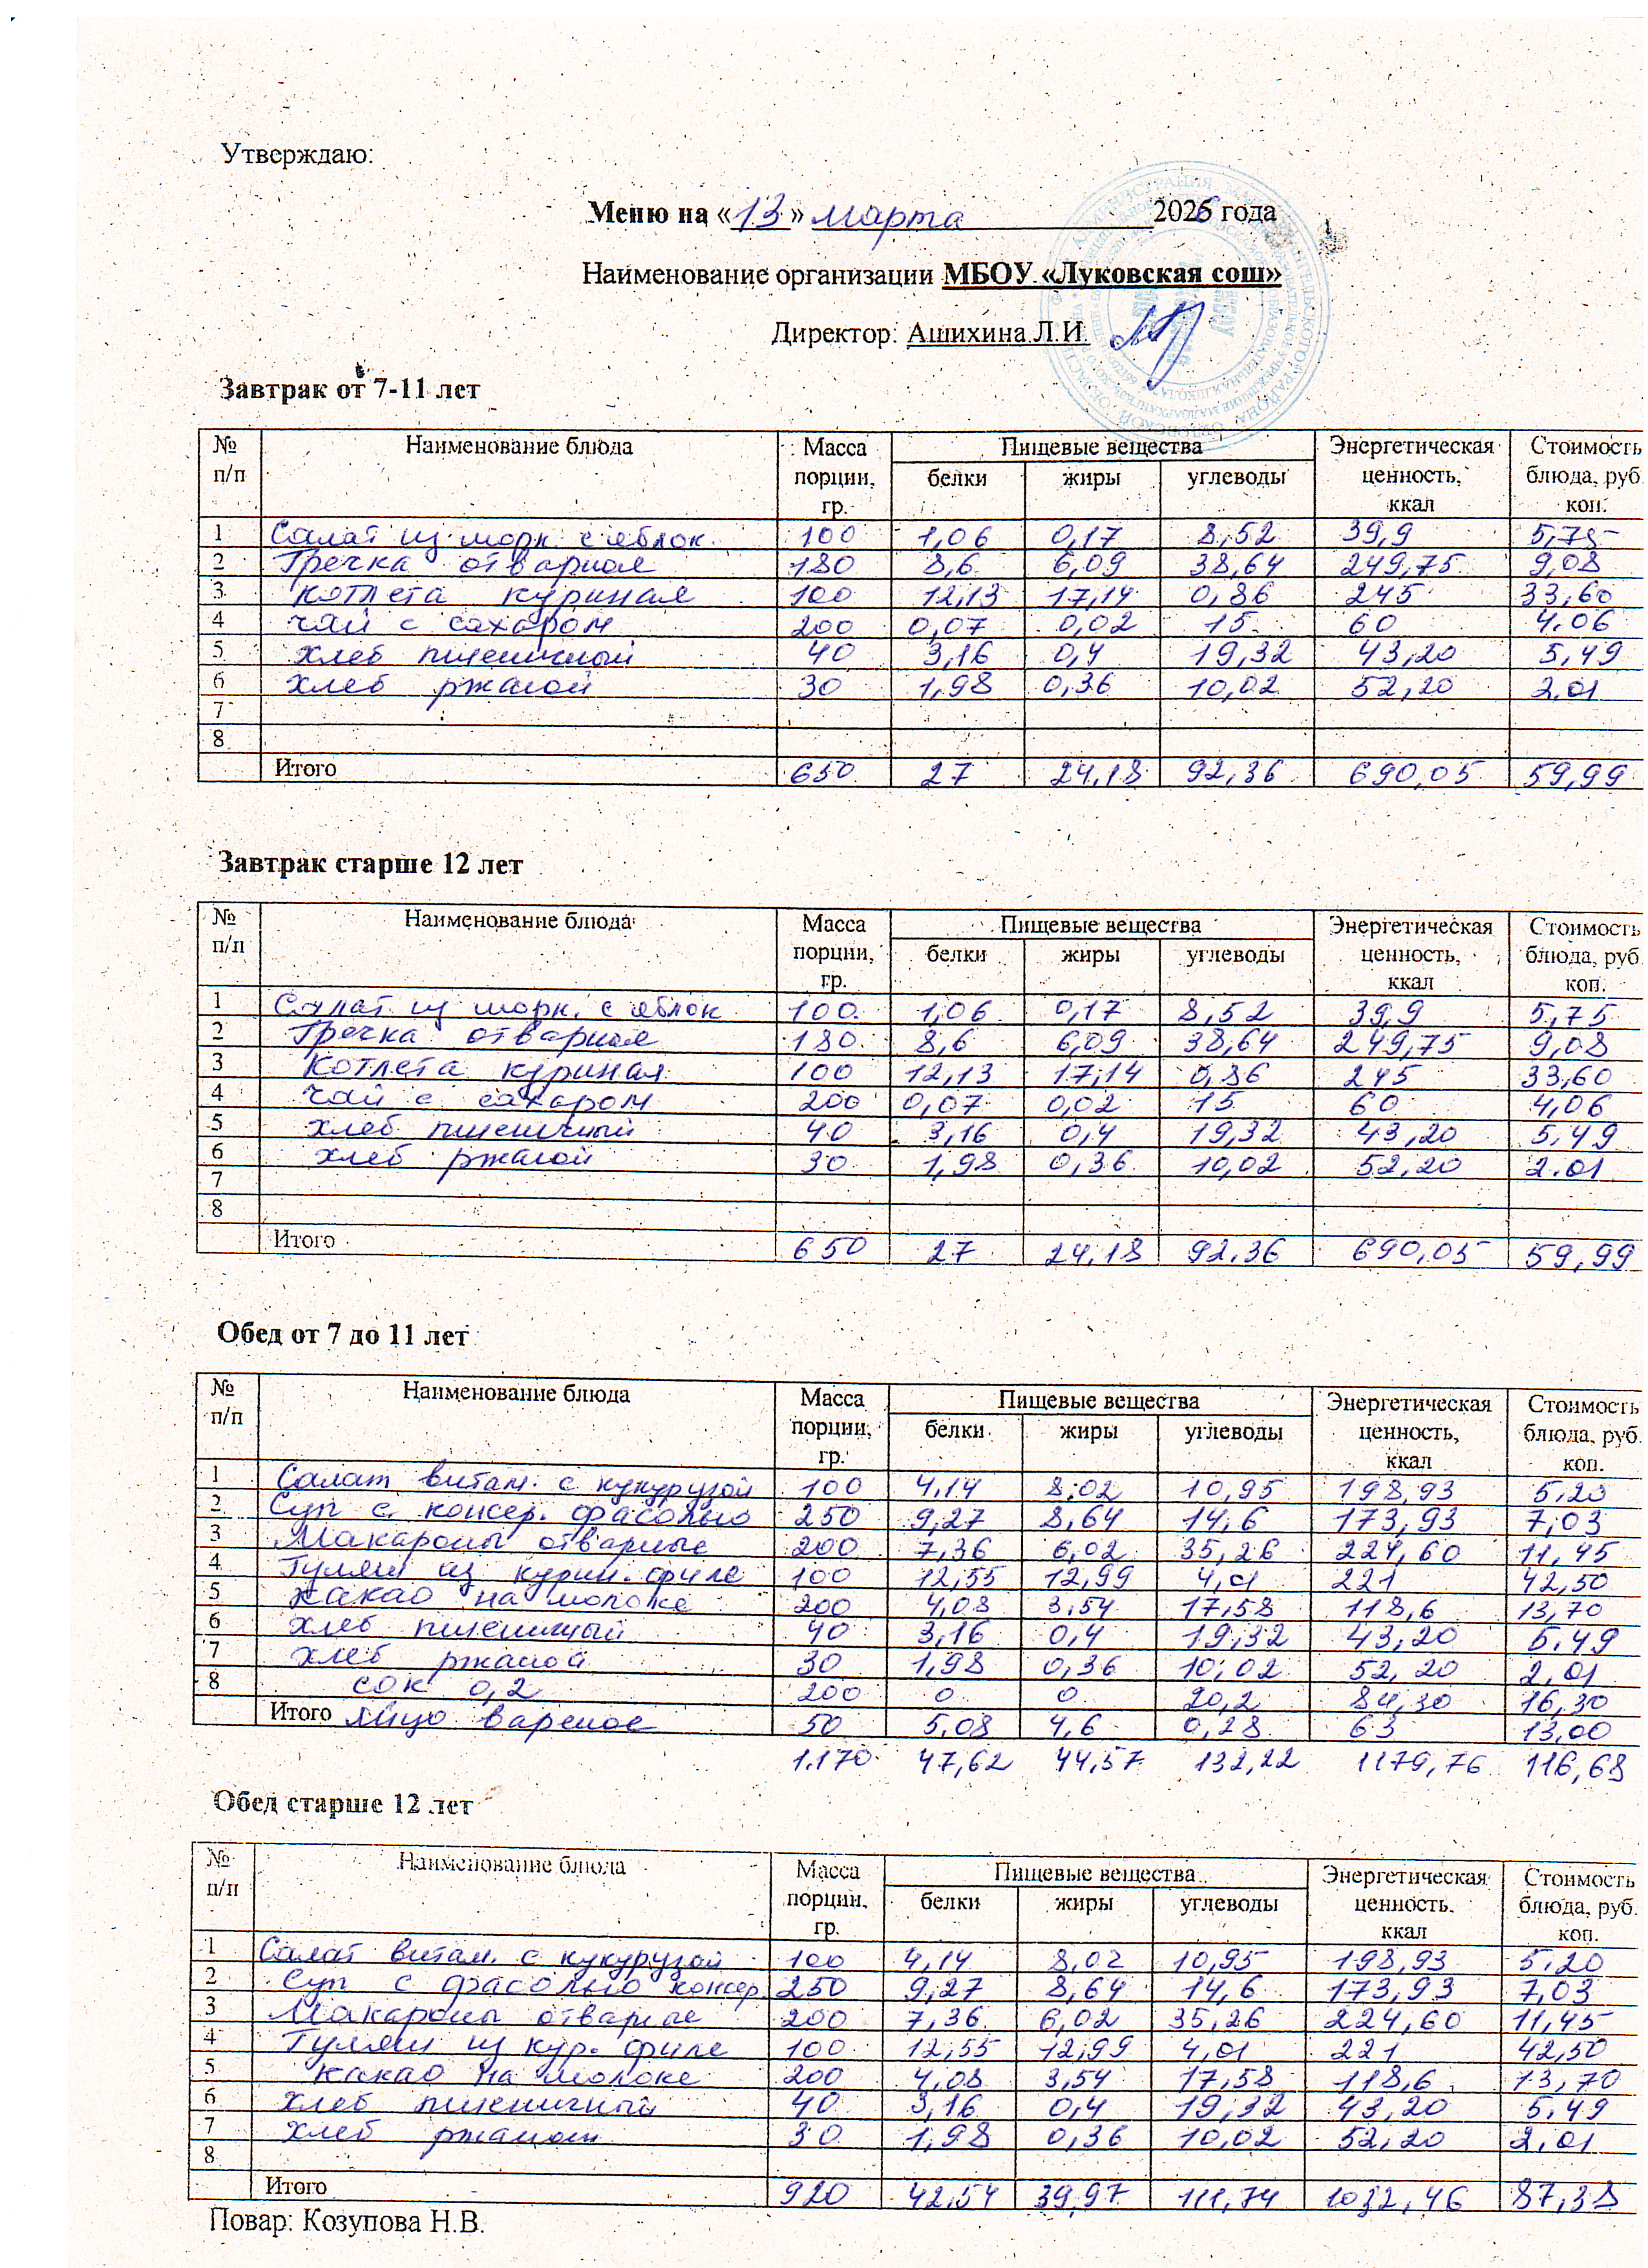 Утверждаю:
Меню на «13» марта 2026 года
Наименование организации МБОУ «Луковская сош»
Директор: Ашихина Л.И.
Завтрак от 7-11 лет
№ п/п Наименование блюда Масса порции, гр. Пищевые вещества белки жиры углеводы Энергетическая ценность, ккал Стоимость блюда, руб коп.
1 Салат из морк. с яблок. 100 1,06 0,17 8,52 39,9 5,75
2 Гречка отварная 180 8,6 6,09 38,64 249,75 9,08
3 котлета куриная 100 12,13 17,14 0,86 245 33,60
4 чай с сахаром 200 0,07 0,02 15 60 4.06
5 хлеб пшеничный 40 3,16 0,4 19,32 43,20 5,49
6 хлеб ржаной 30 1,98 0,36 10,02 52,20 2.01
7
8
Итого 650 27 24,18 92,36 690,05 59,99
Завтрак старше 12 лет
№ п/п Наименование блюда Масса порции, гр. Пищевые вещества белки жиры углеводы Энергетическая ценность, ккал Стоимость блюда, руб коп.
1 Салат из морк. с яблок 100 1,06 0,17 8,52 39,9 5,75
2 Гречка отварная 180 8,6 6,09 38,64 249,75 9,08
3 котлета куриная 100 12,13 17,14 0,86 245 33,60
4 чай с сахаром 200 0,07 0,02 15 60 4,06
5 хлеб пшеничный 40 3,16 0,4 19,32 43,20 5,49
6 хлеб ржаной 30 1,98 0,36 10,02 52,20 2.01
7
8
Итого 650 27 24,18 92,36 690,05 59,99
Обед от 7 до 11 лет
№ п/п Наименование блюда Масса порции, гр. Пищевые вещества белки жиры углеводы Энергетическая ценность, ккал Стоимость блюда, руб. коп.
1 Салат витам. с кукурузой 100 4,14 8,02 10,95 198,93 5,20
2 Суп с консер. фасолью 250 9,27 8,64 14,6 173,93 7,03
3 Макароны отварные 200 7,36 6,02 35,26 224,60 11,45
4 Гуляш из курин. филе 100 12,55 12,99 4,01 221 42,50
5 какао на молоке 200 4,08 3,54 17,58 118,6 13,70
6 хлеб пшеничный 40 3,16 0,4 19,32 43,20 5.49
7 хлеб ржаной 30 1,98 0,36 10,02 52,20 2,01
8 сок 0,2 200 0 0 20,2 84,30 16,30
Итого яйцо вареное 50 5,08 4,6 0,28 63 13,00
1.170 47,62 44,57 132,22 1179,76 116,68
Обед старше 12 лет
№ п/п Наименование блюда Масса порции, гр. Пищевые вещества белки жиры углеводы Энергетическая ценность, ккал Стоимость блюда, руб. коп.
1 Салат витам. с кукурузой 100 4,14 8,02 10,95 198,93 5.20
2 Суп с фасолью консер. 250 9,27 8,64 14,6 173,93 7,03
3 Макароны отварные 200 7,36 6,02 35,26 224,60 11,45
4 Гуляш из кур. филе 100 12,55 12,99 4,01 221 42,50
5 какао на молоке 200 4,08 3,54 17,58 118,6 13,70
6 хлеб пшеничный 40 3,16 0,4 19,32 43,20 5.49
7 хлеб ржаной 30 1,98 0,36 10,02 52,20 2,01
8
Итого 920 42,54 39,97 111,74 1032,46 87,38
Повар: Козупова Н.В.